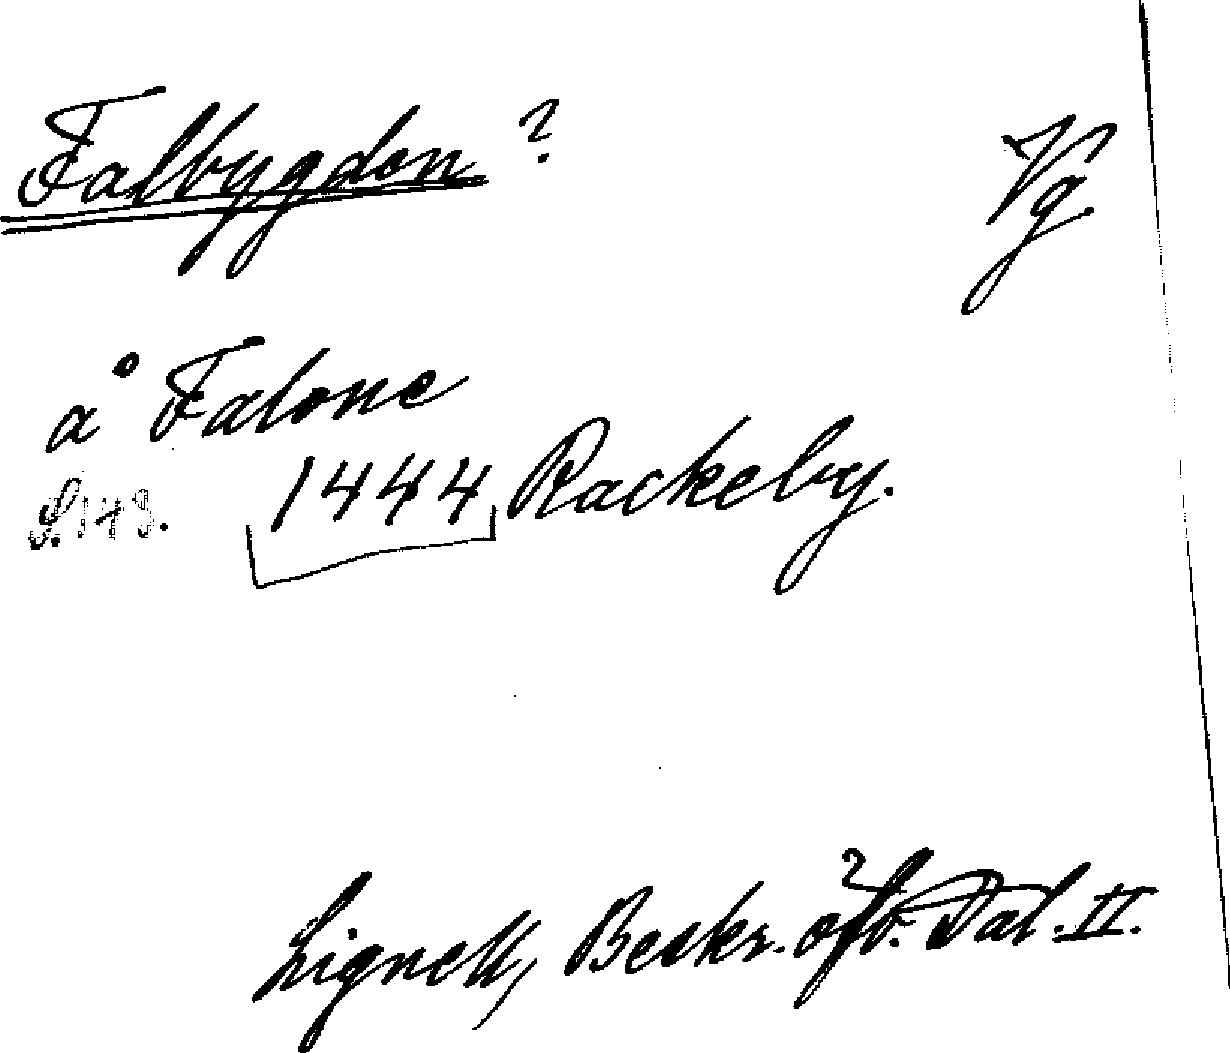 Falbygden ? Vg.
å Falone
S. 149. 1444 Rackeby.
Lignell, Beskr. öfv. Dal. II.